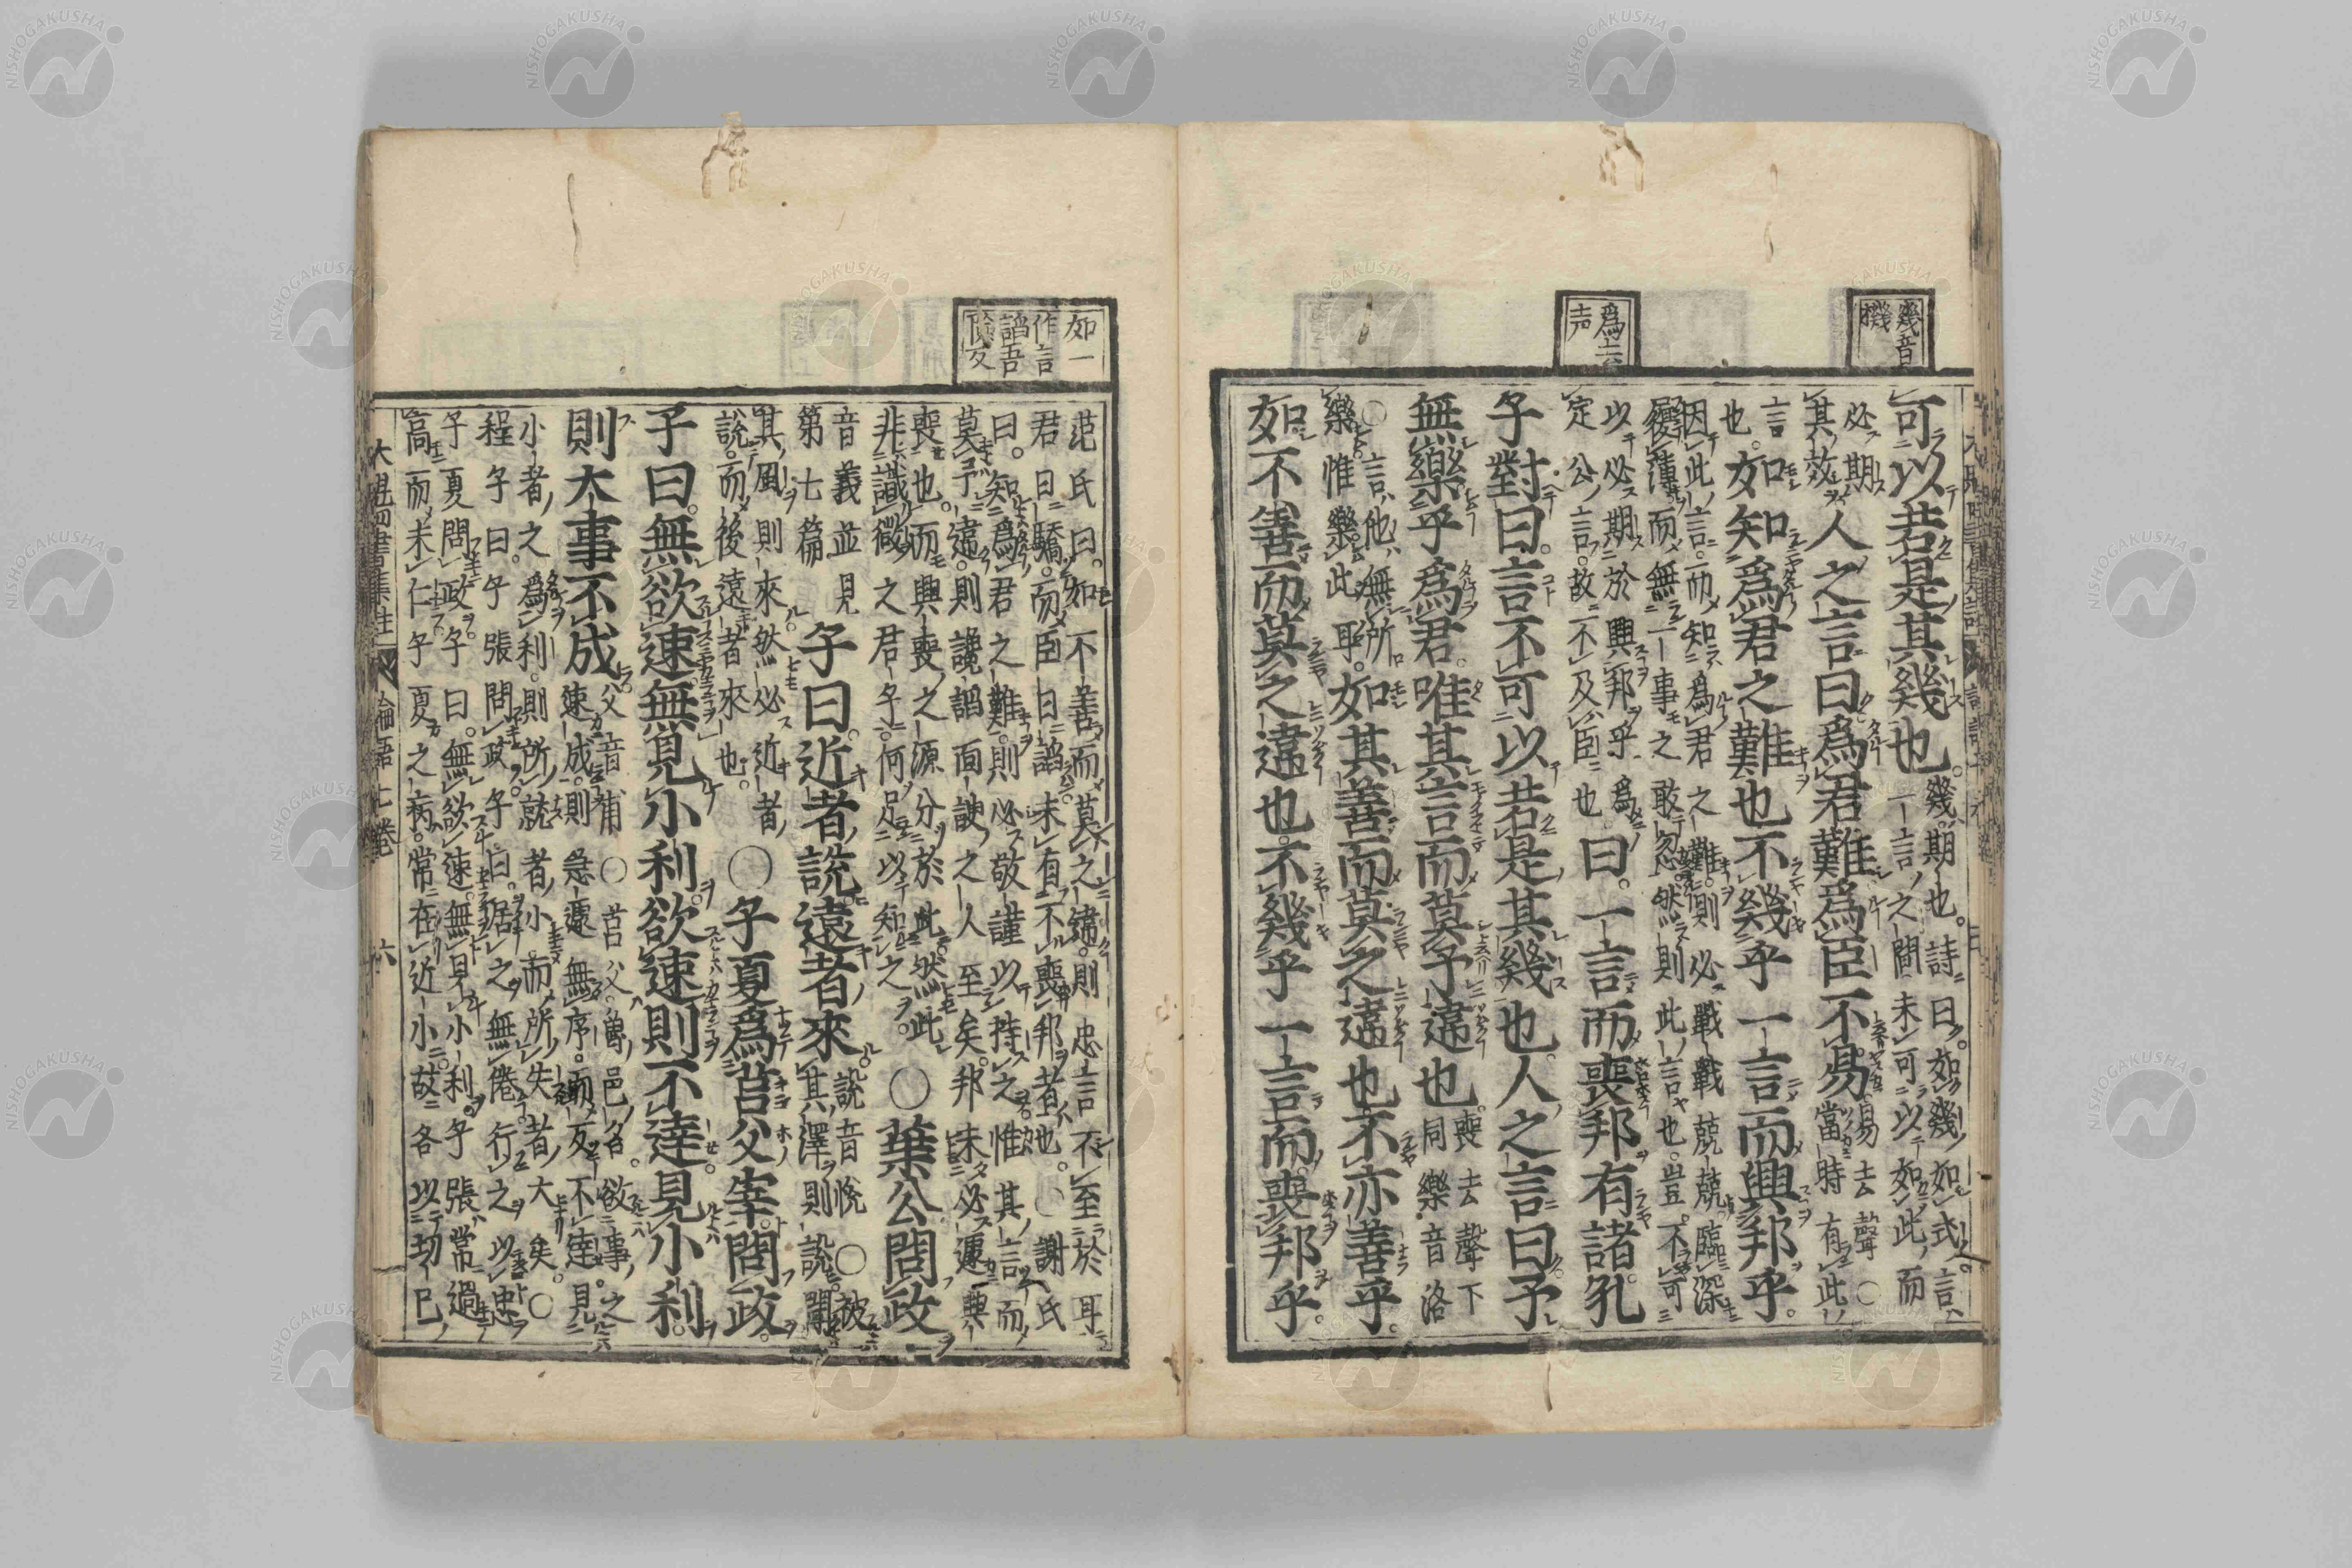 幾音
機
爲去
声
可以若是其幾也。幾。期也。詩曰。如幾如式。言
一言之間未可以如此而
必期
其效人之言曰爲君難爲臣不易。易去聲○
當時有此
言
也。如知爲君之難也不幾乎一言而興邦乎。
因此言。而知爲君之難。則必戰戰兢兢。臨深
履薄。而無一事之敢忽。然則此言也。豈不可
以必期於興邦乎。爲
定公言。故不及臣也曰。一言而喪邦有諸。孔
子對曰。言不可以若是其幾也。人之言曰予
無樂乎爲君。唯其言而莫予違也。喪去聲下
同樂音洛
○言他無所
樂。惟樂此耳。如其善而莫之違也不亦善乎。
如不善而莫之違也。不幾乎一言而喪邦乎。
如一
作言
謟吾
范氏曰。如不善而莫之違。則忠言不至於耳
君曰驕。而臣曰謟。未有不喪邦者也。○謝氏
曰。知爲君之難。則必敬謹以持之。惟其言而
莫予違。則讒謟面諛之人至矣。邦未必遽興
喪也。而興喪之源分於此。然此
非識微之君子。何足以知之。○葉公問政
音義並見
第七篇子曰。近者說。遠者來。說音悅○被
其澤則說聞
其風則來然必近者
說。而後遠者來也。○子夏爲莒父宰。問政。
子曰。無欲速。無見小利。欲速則不達。見小利。
則大事不成。父音甫○莒父。魯邑名。欲事之
速成。則急遽無序。而反不達。見
小者之爲利。則所就者小而所失者大矣。○
程子曰。子張問政。子曰。居之無倦。行之以忠
子夏問政。子曰。無欲速。無見小利。子張常過
高而未仁子夏之病。常在近小。故各以切已
大魁四書集註
論語七卷
六